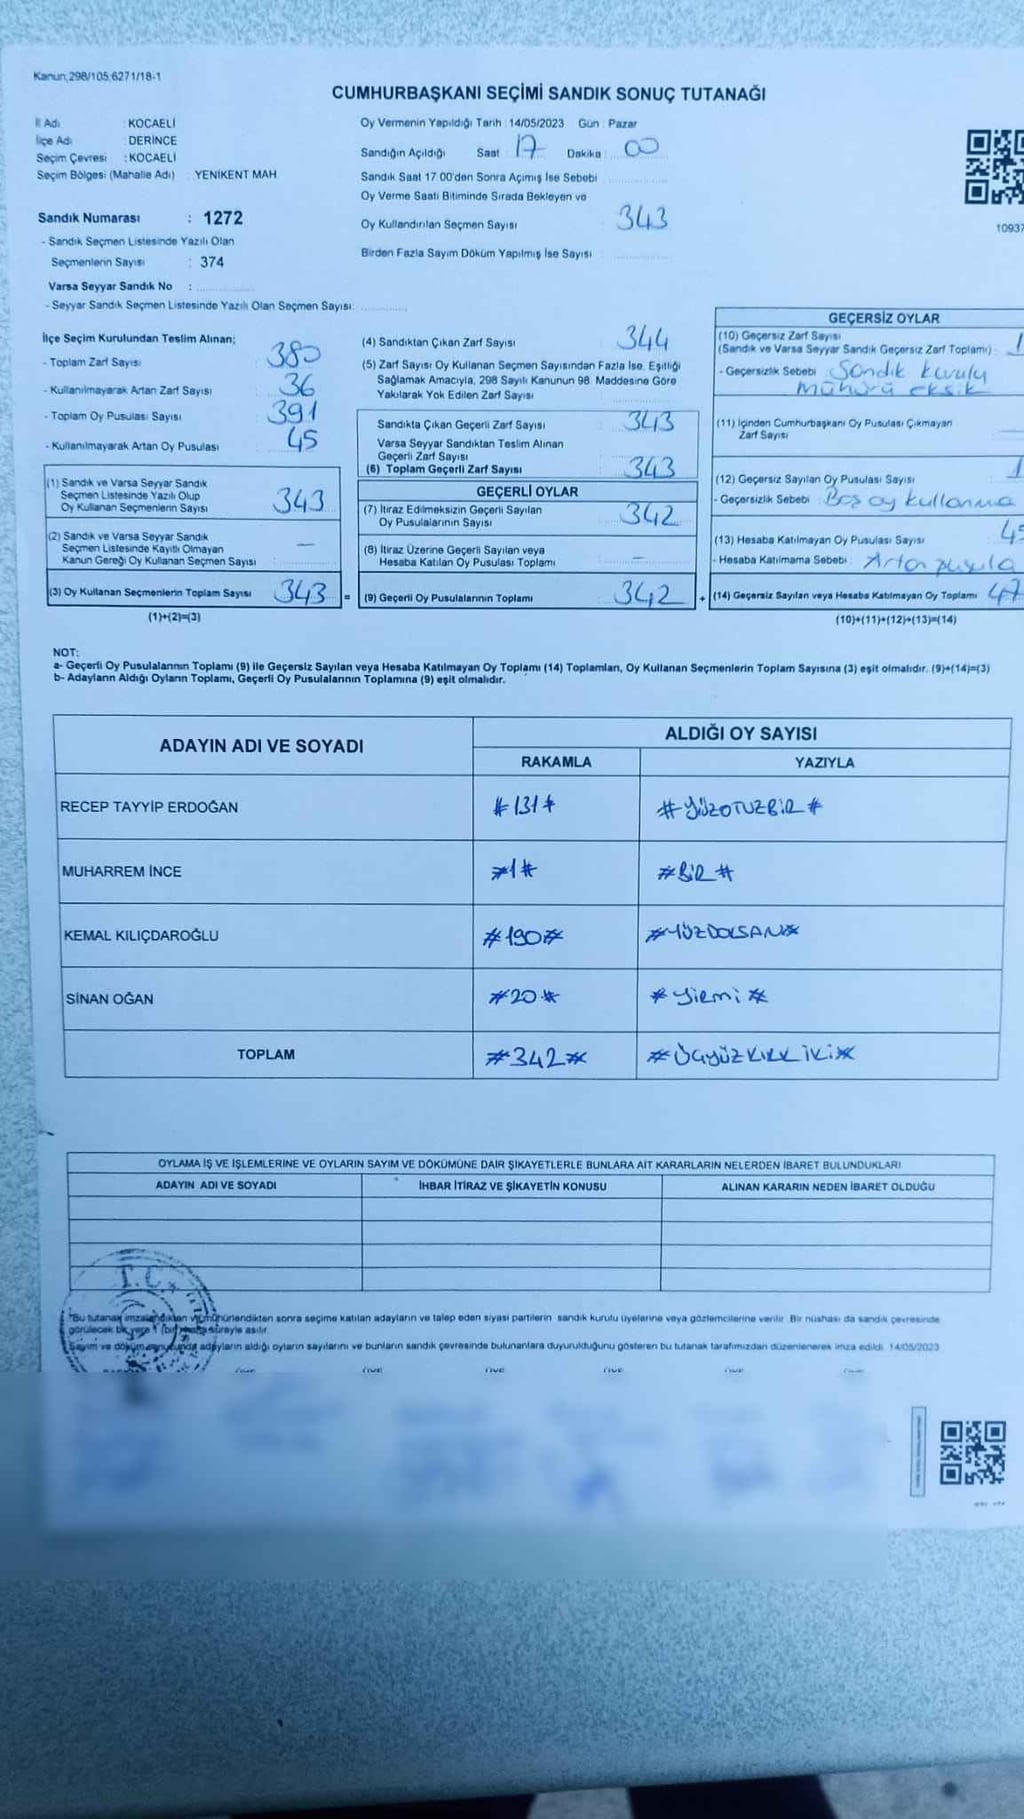 Kanun;298/105;6271/18-1
CUMHURBAŞKANI SEÇİMİ SANDIK SONUÇ TUTANAĞI
İl Adı : KOCAELİ
İlçe Adı : DERİNCE
Seçim Çevresi : KOCAELİ
Seçim Bölgesi (Mahalle Adı) : YENİKENT MAH
Sandık Numarası : 1272
- Sandık Seçmen Listesinde Yazılı Olan
Seçmenlerin Sayısı : 374
Varsa Seyyar Sandık No :
- Seyyar Sandık Seçmen Listesinde Yazılı Olan Seçmen Sayısı:
Oy Vermenin Yapıldığı Tarih : 14/05/2023 Gün : Pazar
Sandığın Açıldığı Saat 17 Dakika : 00
Sandık Saat 17:00'den Sonra Açımış İse Sebebi
Oy Verme Saati Bitiminde Sırada Bekleyen ve
Oy Kullandırılan Seçmen Sayısı 343
Birden Fazla Sayım Döküm Yapılmış İse Sayısı
10937
İlçe Seçim Kurulundan Teslim Alınan;
- Toplam Zarf Sayısı 380
- Kullanılmayarak Artan Zarf Sayısı 36
- Toplam Oy Pusulası Sayısı 391
- Kullanılmayarak Artan Oy Pusulası 45
(1) Sandık ve Varsa Seyyar Sandık
Seçmen Listesinde Yazılı Olup
Oy Kullanan Seçmenlerin Sayısı 343
(2) Sandık ve Varsa Seyyar Sandık
Seçmen Listesinde Kayıtlı Olmayan
Kanun Gereği Oy Kullanan Seçmen Sayısı —
(3) Oy Kullanan Seçmenlerin Toplam Sayısı 343 =
(1)+(2)=(3)
(4) Sandıktan Çıkan Zarf Sayısı 344
(5) Zarf Sayısı Oy Kullanan Seçmen Sayısından Fazla İse, Eşitliği
Sağlamak Amacıyla, 298 Sayılı Kanunun 98. Maddesine Göre
Yakılarak Yok Edilen Zarf Sayısı
Sandıkta Çıkan Geçerli Zarf Sayısı 343
Varsa Seyyar Sandıktan Teslim Alınan
Geçerli Zarf Sayısı
(6) Toplam Geçerli Zarf Sayısı 343
GEÇERLİ OYLAR
(7) İtiraz Edilmeksizin Geçerli Sayılan
Oy Pusulalarının Sayısı 342
(8) İtiraz Üzerine Geçerli Sayılan veya
Hesaba Katılan Oy Pusulası Toplamı —
(9) Geçerli Oy Pusulalarının Toplamı 342 +
GEÇERSİZ OYLAR
(10) Geçersiz Zarf Sayısı
(Sandık ve Varsa Seyyar Sandık Geçersiz Zarf Toplamı) : 1
- Geçersizlik Sebebi : Sandık kurulu
mühürü eksik
(11) İçinden Cumhurbaşkanı Oy Pusulası Çıkmayan
Zarf Sayısı —
(12) Geçersiz Sayılan Oy Pusulası Sayısı 1
- Geçersizlik Sebebi : Boş oy kullanma
(13) Hesaba Katılmayan Oy Pusulası Sayısı 45
- Hesaba Katılmama Sebebi : Artan pusula
(14) Geçersiz Sayılan veya Hesaba Katılmayan Oy Toplamı 47
(10)+(11)+(12)+(13)=(14)
NOT:
a- Geçerli Oy Pusulalarının Toplamı (9) ile Geçersiz Sayılan veya Hesaba Katılmayan Oy Toplamı (14) Toplamları, Oy Kullanan Seçmenlerin Toplam Sayısına (3) eşit olmalıdır. (9)+(14)=(3)
b- Adayların Aldığı Oyların Toplamı, Geçerli Oy Pusulalarının Toplamına (9) eşit olmalıdır.
ADAYIN ADI VE SOYADI ALDIĞI OY SAYISI
RAKAMLA YAZIYLA
RECEP TAYYİP ERDOĞAN #131# #YÜZOTUZBİR#
MUHARREM İNCE #1# #BİR#
KEMAL KILIÇDAROĞLU #190# #YÜZDOKSAN#
SİNAN OĞAN #20# #yirmi#
TOPLAM #342# #ÜçyüzKIRKİKİ#
OYLAMA İŞ VE İŞLEMLERİNE VE OYLARIN SAYIM VE DÖKÜMÜNE DAİR ŞİKAYETLERLE BUNLARA AİT KARARLARIN NELERDEN İBARET BULUNDUKLARI
ADAYIN ADI VE SOYADI İHBAR İTİRAZ VE ŞİKAYETİN KONUSU ALINAN KARARIN NEDEN İBARET OLDUĞU
T.C.
"Bu tutanak imzalandıktan ve mühürlendikten sonra seçime katılan adayların ve talep eden siyasi partilerin sandık kurulu üyelerine veya gözlemcilerine verilir. Bir nüshası da sandık çevresinde
görülecek bir yere 1 (bir) hafta süreyle asılır.
Sayım ve döküm sonucunda adayların aldığı oyların sayılarını ve bunların sandık çevresinde bulunanlara duyurulduğunu gösteren bu tutanak tarafımızdan düzenlenerek imza edildi. 14/05/2023